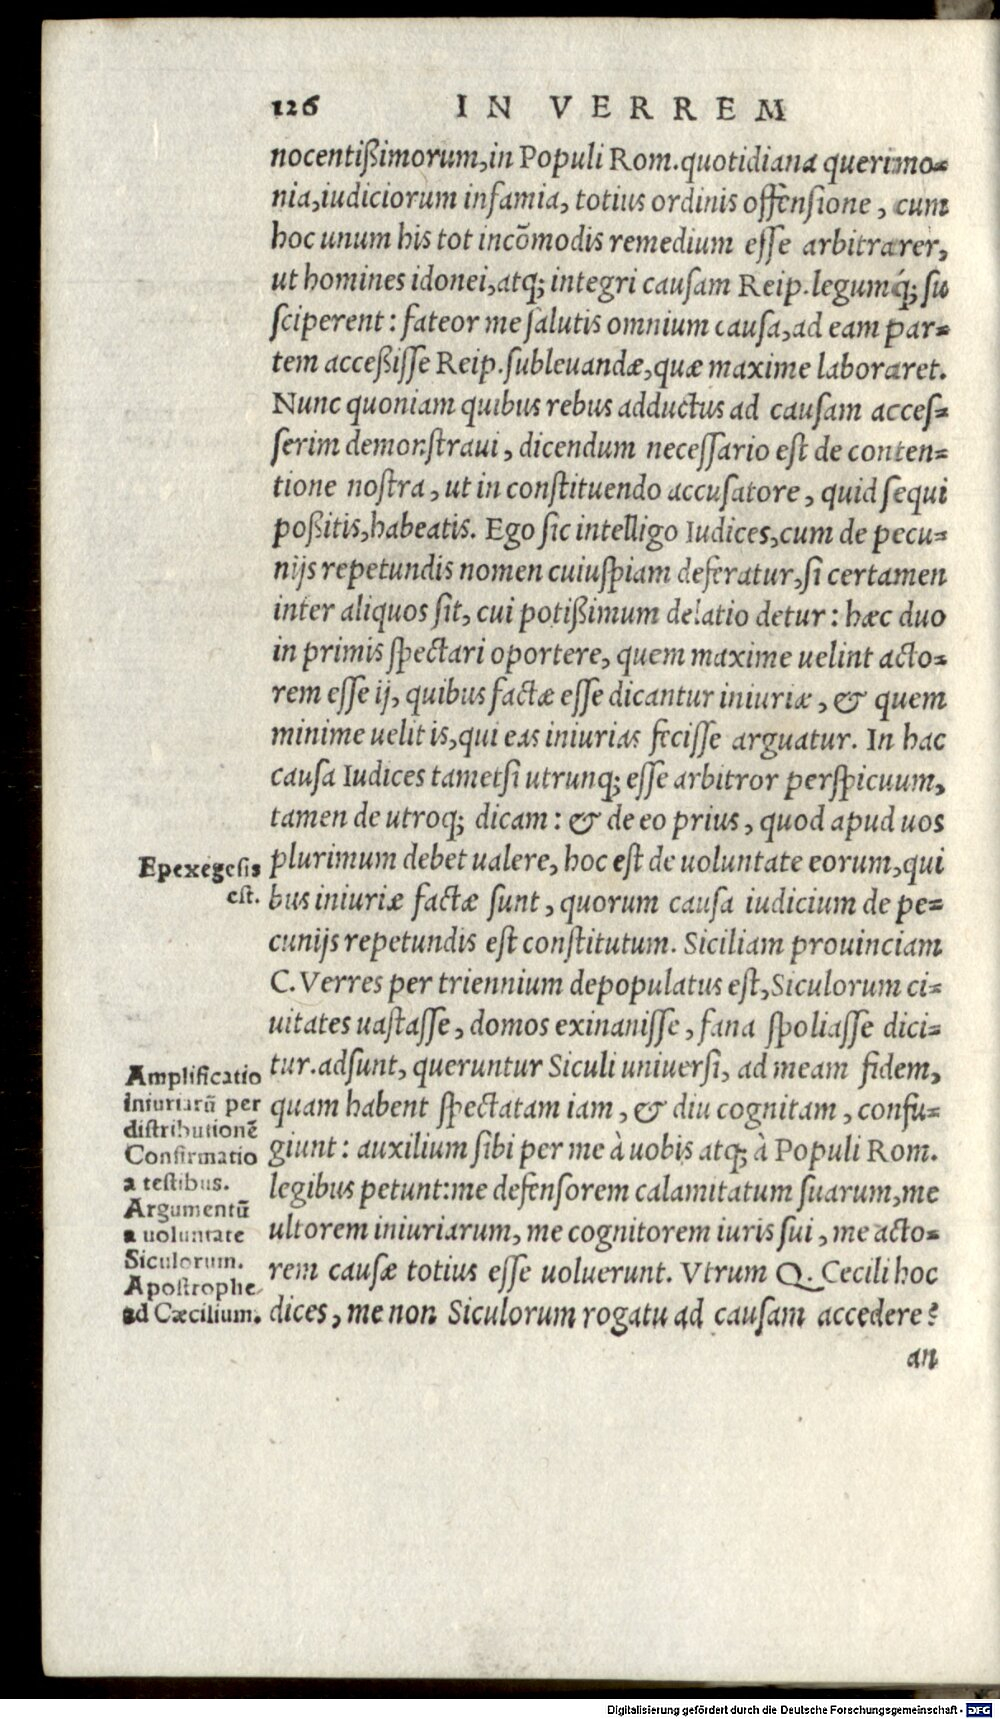 126 IN VERREM
nocentißimorum, in Populi Rom. quotidiana querimo-
nia, iudiciorum infamia, totius ordinis offensione, cum
hoc unum his tot incõmodis remedium esse arbitrarer,
ut homines idonei, atq; integri causam Reip. legumq́; su
sciperent: fateor me salutis omnium causa, ad eam par-
tem acceßisse Reip. subleuandæ, quæ maxime laboraret.
Nunc quoniam quibus rebus adductus ad causam acces-
serim demonstraui, dicendum necessario est de conten-
tione nostra, ut in constituendo accusatore, quid sequi
poßitis, habeatis. Ego sic intelligo Iudices, cum de pecu-
nijs repetundis nomen cuiuspiam deferatur, si certamen
inter aliquos sit, cui potißimum delatio detur: hæc duo
in primis spectari oportere, quem maxime uelint acto-
rem esse ij, quibus factæ esse dicantur iniuriæ, & quem
minime uelit is, qui eas iniurias fecisse arguatur. In hac
causa Iudices tametsi utrunq; esse arbitror perspicuum,
tamen de utroq; dicam: & de eo prius, quod apud uos
plurimum debet ualere, hoc est de uoluntate eorum, qui
bus iniuriæ factæ sunt, quorum causa iudicium de pe-
cunijs repetundis est constitutum. Siciliam prouinciam
C. Verres per triennium depopulatus est, Siculorum ci-
uitates uastasse, domos exinanisse, fana spoliasse dici-
tur. adsunt, queruntur Siculi uniuersi, ad meam fidem,
quam habent spectatam iam, & diu cognitam, confu-
giunt: auxilium sibi per me à uobis atq; à Populi Rom.
legibus petunt: me defensorem calamitatum suarum, me
ultorem iniuriarum, me cognitorem iuris sui, me acto-
rem causæ totius esse uoluerunt. Vtrum Q. Cecili hoc
dices, me non Siculorum rogatu ad causam accedere?
an
Epexegesis
est.
Amplificatio
iniuriarũ per
distributionẽ
Confirmatio
a testibus.
Argumentũ
a uoluntate
Siculorum.
Apostrophe
ad Cæcilium.
Digitalisierung gefördert durch die Deutsche Forschungsgemeinschaft - DFG